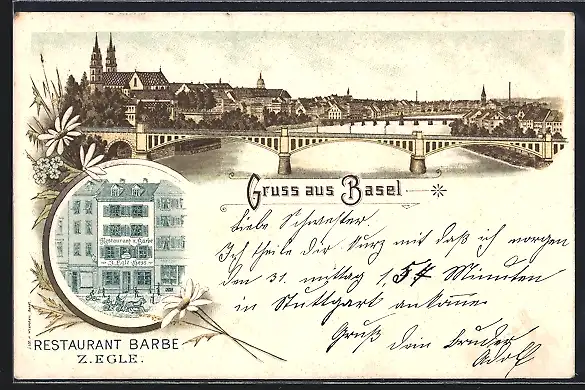 Gruss aus Basel
Liebe Schwester
Ich theile dir kurz mit daß ich morgen
den 31. mittag 1,54 Minuten
in Stuttgart ankomme.
Gruß dein Bruder
Adolf
Restaurant z. Barbe
RESTAURANT BARBE
Z. EGLE.